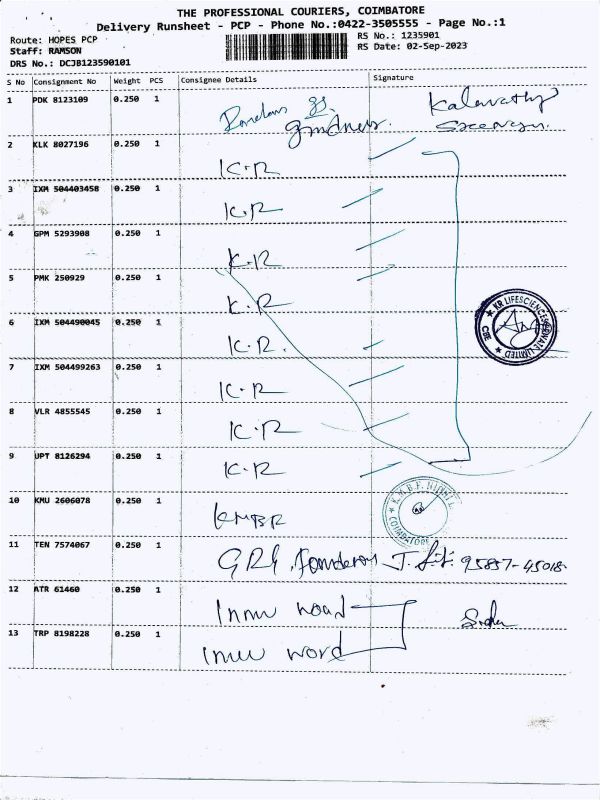 THE PROFESSIONAL COURIERS, COIMBATORE
Delivery Runsheet - PCP - Phone No.:0422-3505555 - Page No.:1
Route: HOPES PCP
Staff: RAMSON
DRS No.: DCJB123590101
RS No.: 1235901
RS Date: 02-Sep-2023
S No Consignment No Weight PCS Consignee Details Signature
1 PDK 8123109 0.250 1 Kalavathy
2 KLK 8027196 0.250 1 K.R
3 IXM 504403458 0.250 1 K.R
4 GPM 5293908 0.250 1 K.R
5 PMK 250929 0.250 1 K.R
6 IXM 504490045 0.250 1 K.R.
7 IXM 504499263 0.250 1 K.R
8 VLR 4855545 0.250 1 K.R
9 UPT 8126294 0.250 1 K.R
KR LIFESCIENCES PRIVATE LIMITED CBE
10 KMU 2606078 0.250 1 KMBR
COIMBATORE
11 TEN 7574067 0.250 1 95857-45018
12 ATR 61460 0.250 1
13 TRP 8198228 0.250 1 word